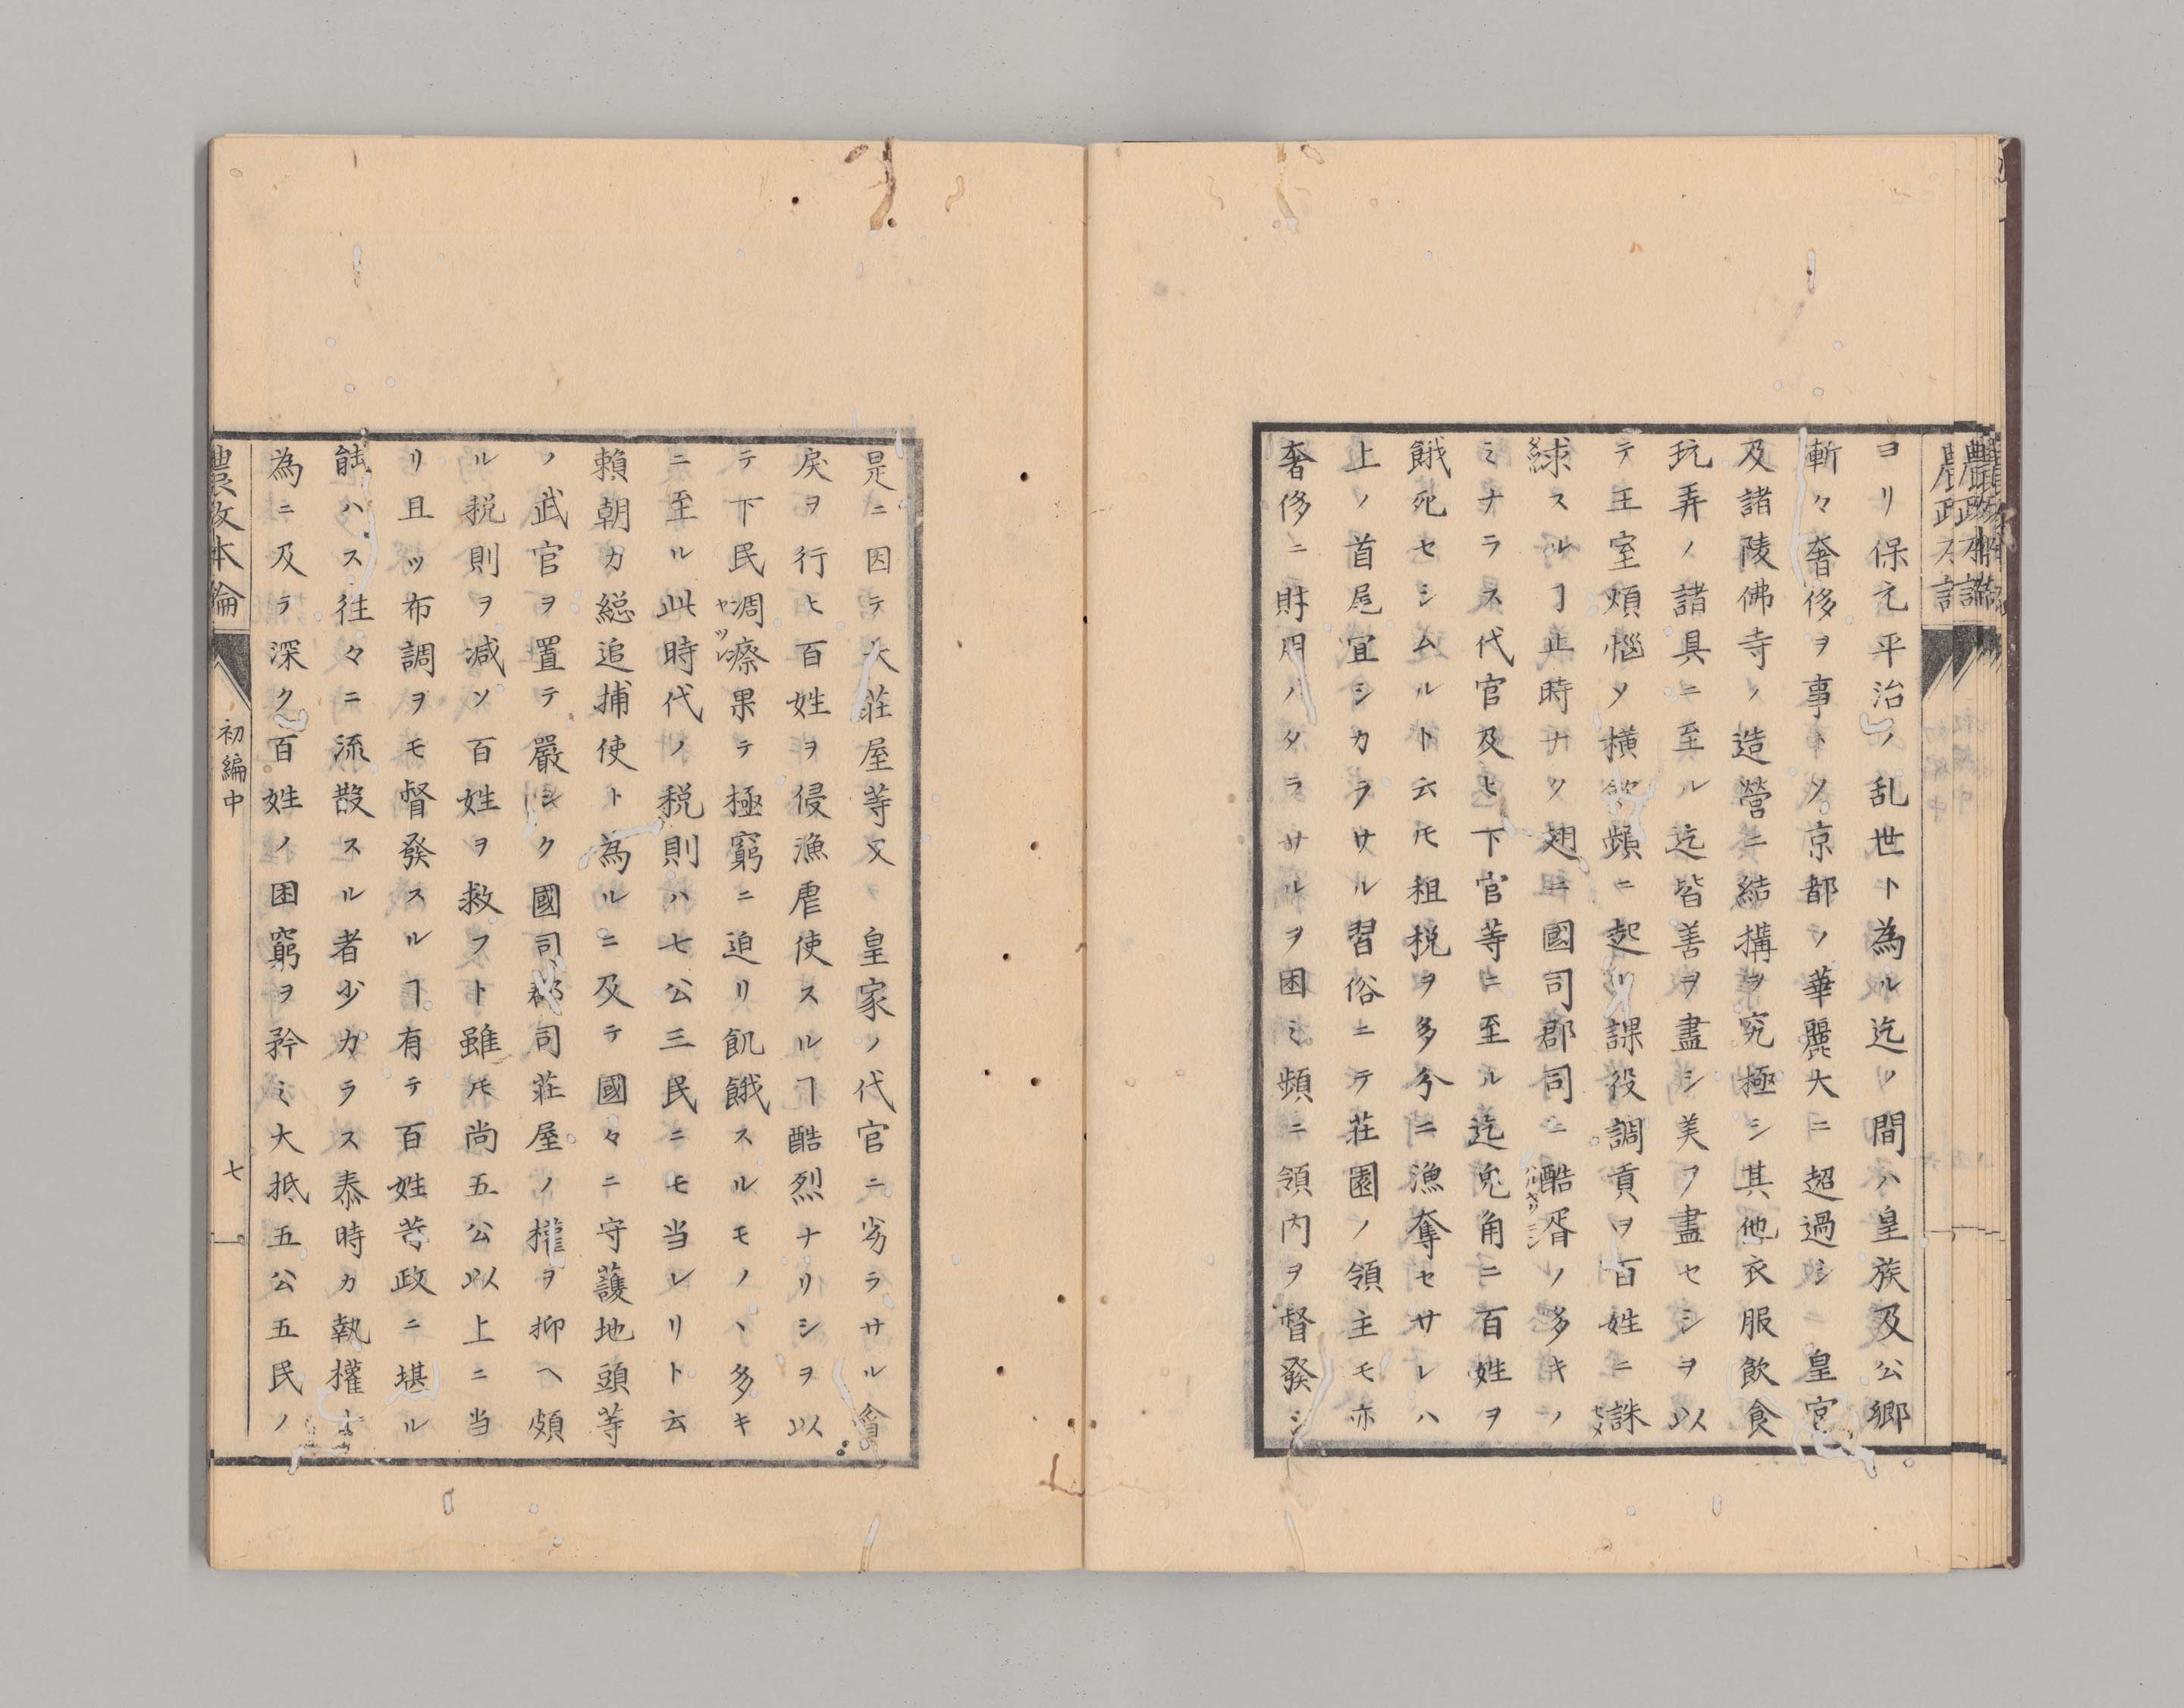 ヨリ保元平治ノ乱世ト為ル迄ノ間ハ皇族及公郷
斬々奢侈ヲ事トメ京都ノ華麗大ニ超過シ皇宮
及諸陵佛寺ノ造營ニ結搆ヲ究極シ其他衣服飲食
玩弄ノ諸具ニ至ル迄皆善ヲ盡シ美ヲ盡セシヲ以
テ王室煩惱メ横斂頻ニ起リ課役調貢ヲ百姓ニ誅
求スルヿ止時ナク廻ニ國司郡司ニ酷胥ノ多キノ
ミナラス代官及ヒ下官等ニ至ル迄兎角ニ百姓ヲ
餓死セシムルト云𪜈租税ヲ多分ニ漁奪セサレハ
上ノ首尾宜シカラサル習俗ニテ莊園ノ領主モ亦
奢侈ニ財用ノタラサルヲ困ミ頻ニ領内ヲ督發シ
是ニ因テ大莊屋等又皇家ノ代官ニ劣ラサル貪
戻ヲ行ヒ百姓ヲ侵漁虐使スルヿ酷烈ナリシヲ以
テ下民凋瘵果テ極窮ニ迫リ飢餓スルモノヽ多キ
ニ至ル此時代ノ税則ハ七公三民ニモ当レリト云
賴朝カ総追捕使ト為ルニ及テ國々ニ守護地頭等
ノ武官ヲ置テ嚴シク國司郡司莊屋ノ權ヲ抑ヘ頗
ル税則ヲ減ソ百姓ヲ救フト雖𪜈尚五公以上ニ当
リ且ツ布調ヲモ督發スルヿ有テ百姓苛政ニ堪ル
能ハス往々ニ流散スル者少カラス泰時カ執權ト
為ニ及テ深ク百姓ノ困窮ヲ矜ミ大抵五公五民ノ
農政本論
初編中
七